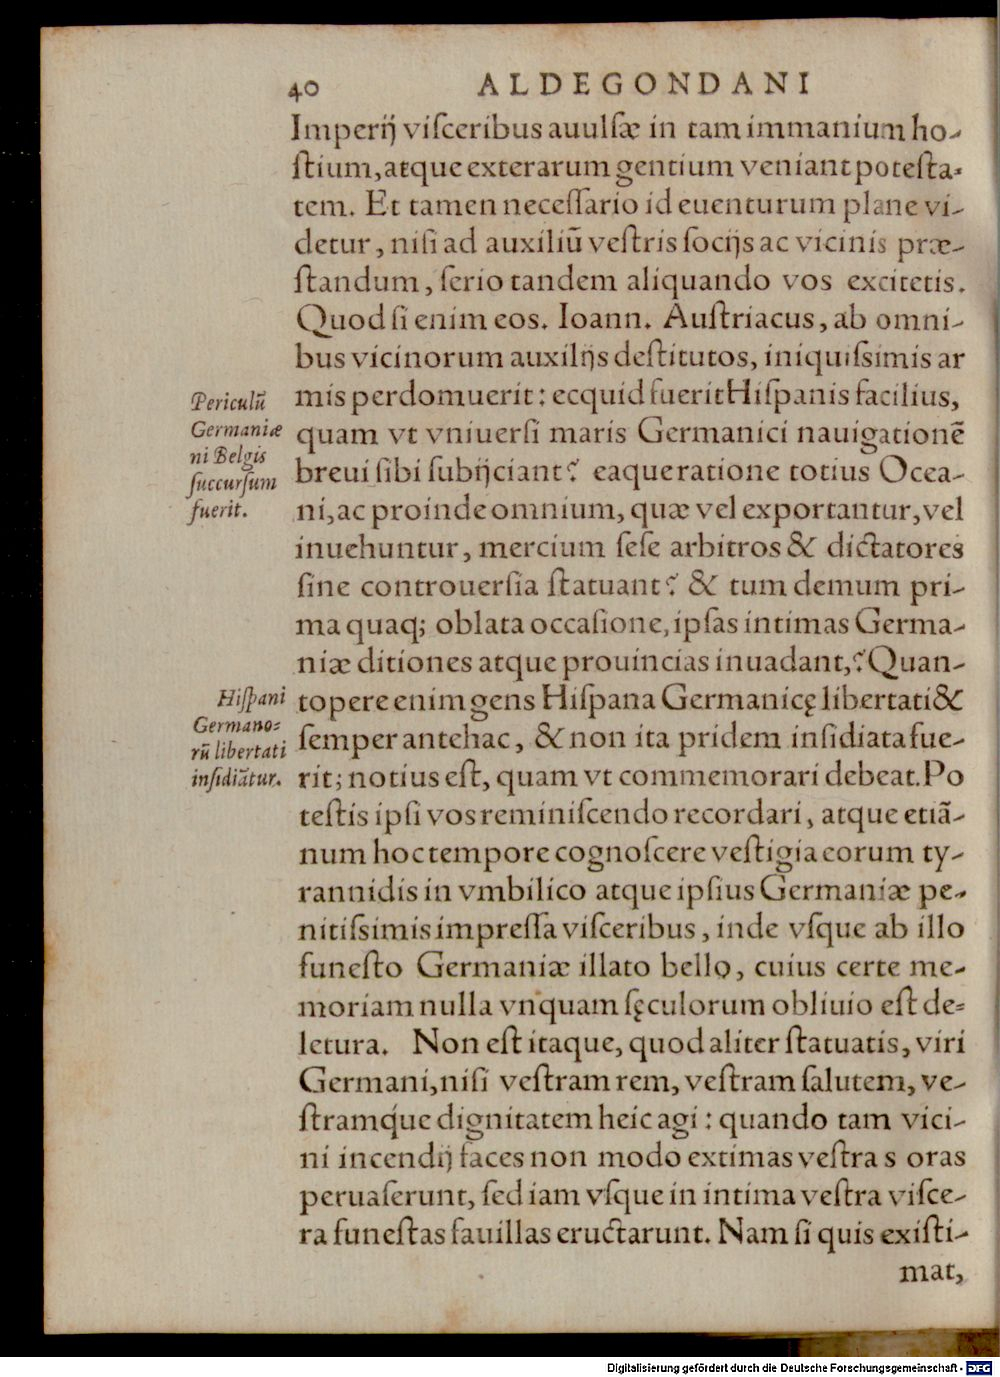 40 ALDEGONDANI
Imperij viſceribus auulſæ in tam immanium ho-
ſtium, atque exterarum gentium veniant poteſta-
tem. Et tamen neceſſario id euenturum plane vi-
detur, niſi ad auxiliū veſtris ſocijs ac vicinis præ-
ſtandum, ſerio tandem aliquando vos excitetis.
Quod ſi enim eos. Ioann. Auſtriacus, ab omni-
bus vicinorum auxilijs deſtitutos, iniquiſsimis ar
mis perdomuerit: ecquid fuerit Hiſpanis facilius,
quam vt vniuerſi maris Germanici nauigationē
breui ſibi ſubijciant? eaque ratione totius Ocea-
ni, ac proinde omnium, quæ vel exportantur, vel
inuehuntur, mercium ſeſe arbitros & dictatores
ſine controuerſia ſtatuant? & tum demum pri-
ma quaq; oblata occaſione, ipſas intimas Germa-
niæ ditiones atque prouincias inuadant,? Quan-
topere enim gens Hiſpana Germanicę libertati &
ſemper antehac, & non ita pridem inſidiata fue-
rit; notius eſt, quam vt commemorari debeat. Po
teſtis ipſi vos reminiſcendo recordari, atque etiā-
num hoc tempore cognoſcere veſtigia eorum ty-
rannidis in vmbilico atque ipſius Germaniæ pe-
nitiſsimis impreſſa viſceribus, inde vſque ab illo
funeſto Germaniæ illato bello, cuius certe me-
moriam nulla vnquam ſęculorum obliuio eſt de-
letura. Non eſt itaque, quod aliter ſtatuatis, viri
Germani, niſi veſtram rem, veſtram ſalutem, ve-
ſtramq́ue dignitatem heic agi: quando tam vici-
ni incendij faces non modo extimas veſtra s oras
peruaſerunt, ſed iam vſque in intima veſtra viſce-
ra funeſtas fauillas eructarunt. Nam ſi quis exiſti-
mat,
Periculū
Germaniæ
ni Belgis
ſuccurſum
fuerit.
Hiſpani
Germano-
rū libertati
inſidiātur.
Digitalisierung gefördert durch die Deutsche Forschungsgemeinschaft - DFG